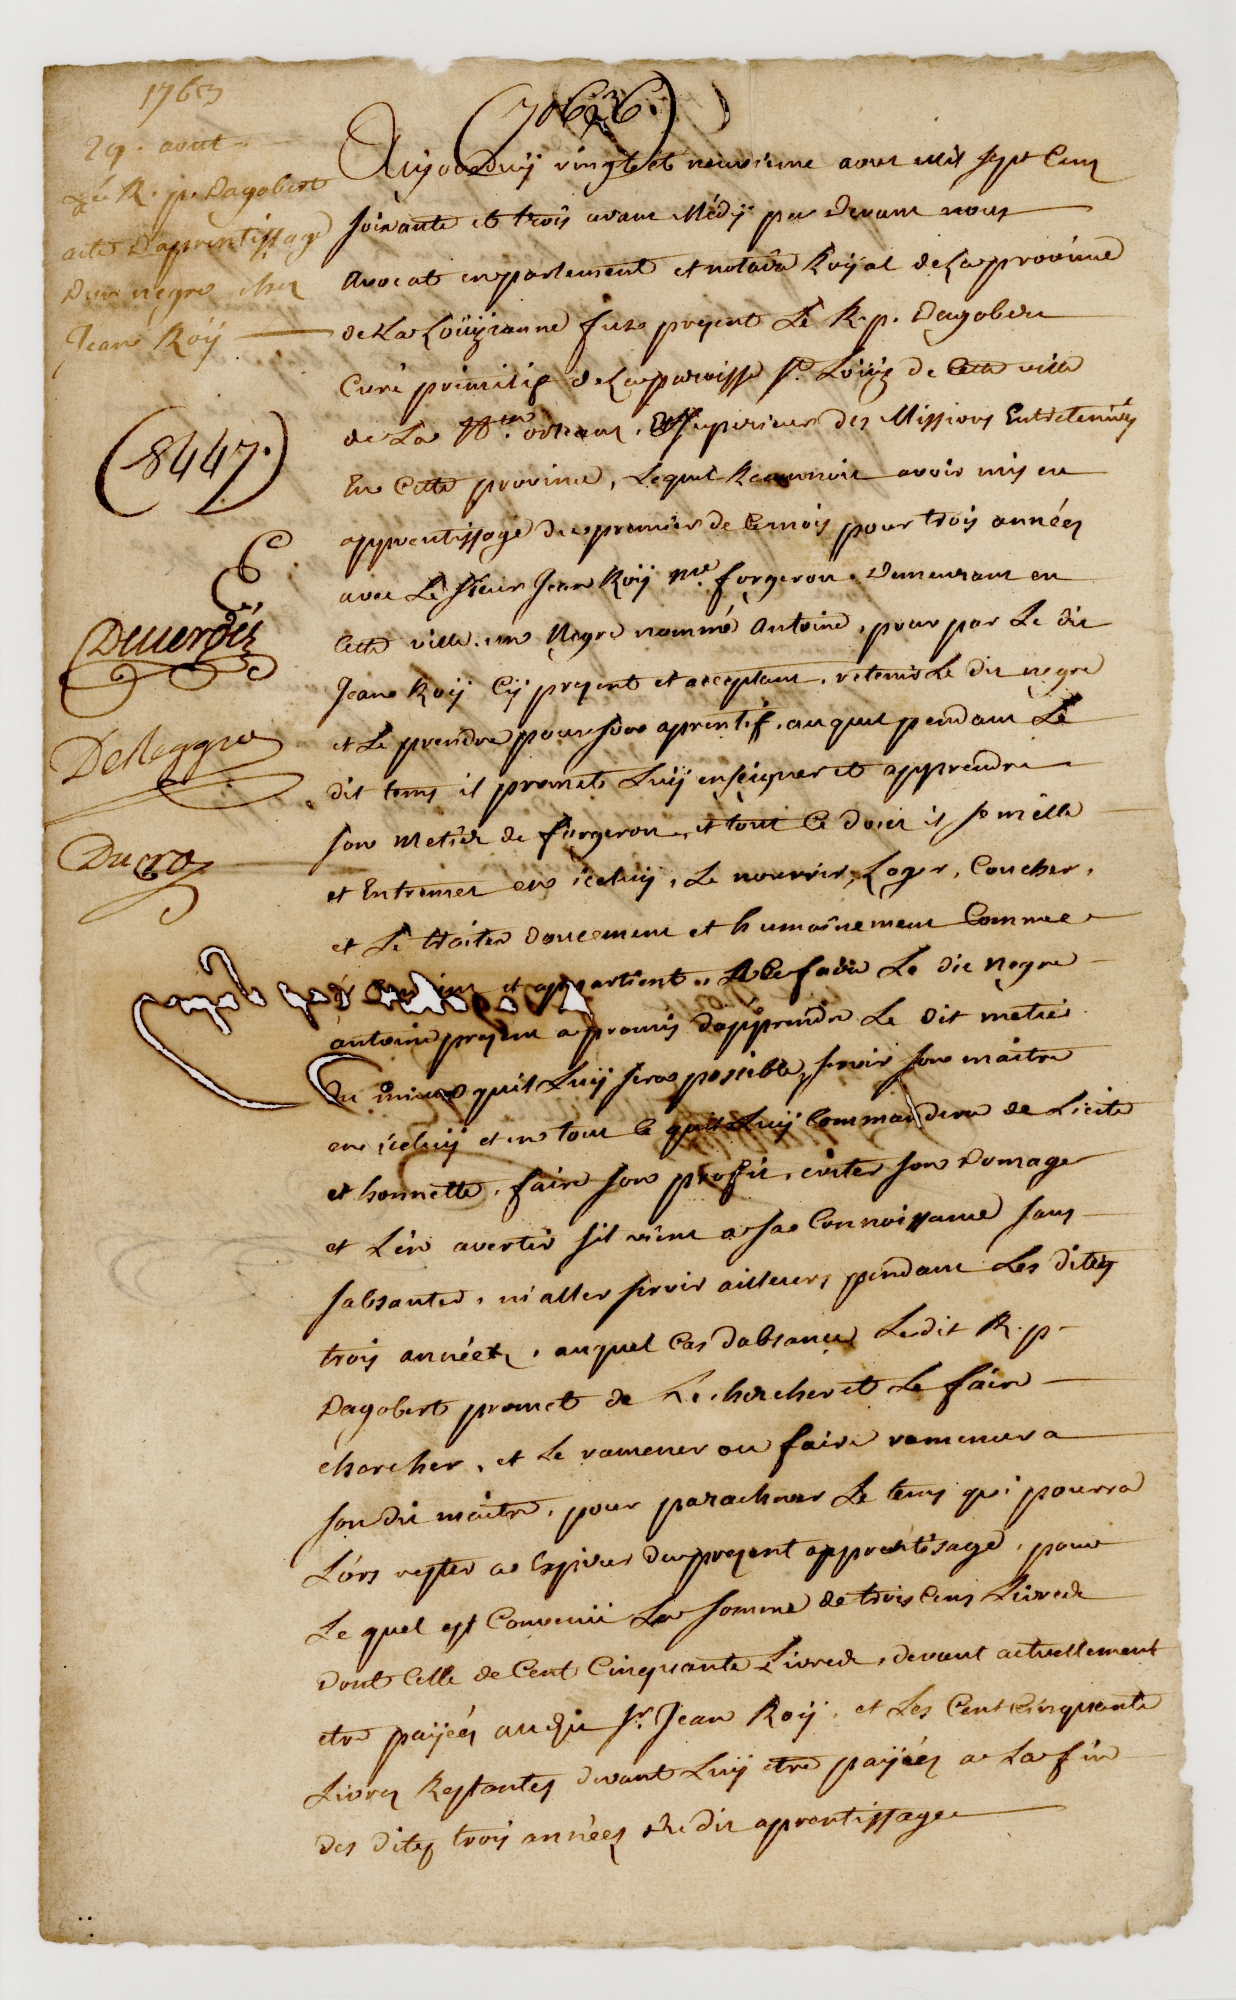 1763
29. aout
Le R. p. Dagobert
acte d'aprentissage
d'un negre chez
Jean Roÿ
(8447.)
Duverdÿ
DeMoggre
Ducros
(70636.)
Aujourduÿ vingt et neuvieme aout mil sept Cent
soixante et trois avant Médÿ par devant nous
avocat en parlement et notaire Royal de La province
de La Loüizianne fut present Le R. p. Dagobert
Curé primitif de La paroisse St. Loüis de Cette ville
de La Nlle. orleans, et superieur des Missions Entretenües
En Cette province, Lequel Reconnoit avoir mis en
apprentissage du premier de Ce mois pour trois années
avec Le Sieur Jean Roÿ Me. forgeron, demeurant en
Cette ville, un Negre nommé Antoine, pour par Le dit
Jean Roÿ Cÿ present et acceptant, retenir Le dit negre
et Le prendre pour son aprentif, auquel pendant Le
dit tems il promet Luÿ enseigner et apprendre
son Metier de forgeron, et tout Ce dont il se mêlle
et Entremet en iceluÿ, Le nourrir, Loger, Coucher,
et Le traiter doucement et humainement Comme
il et appartient. A Ce faire Le dit Negre
antoine present a promis d'apprendre Le dit metier
du mieux quil Luÿ sera possible, servir son maitre
en iceluÿ et en tout Ce quil Luÿ Commandera de Licite
et honnette, faire son proffit, eviter son Domage
et L'en avertir sil vient a sa Connoissance sans
sabsanter, ni aller servir ailleurs pendant Les dites
trois années, auquel Cas dabsance Ledit R. p.
Dagobert promet de Le chercher et Le faire
chercher, et Le ramener ou faire ramener a
son dit maitre, pour parachever Le tems qui pourra
Lors rester a Expirer du present apprentisage, pour
Le quel est Convenü La somme de trois Cens Livres
dont Celle de Cent Cinquante Livres, devant actuellement
etre payées audit Sr. Jean Roÿ, et Les Cent Cinquante
Livres Restantes devant Luÿ etre payées a La fin
des dites trois années du dit aprentissage